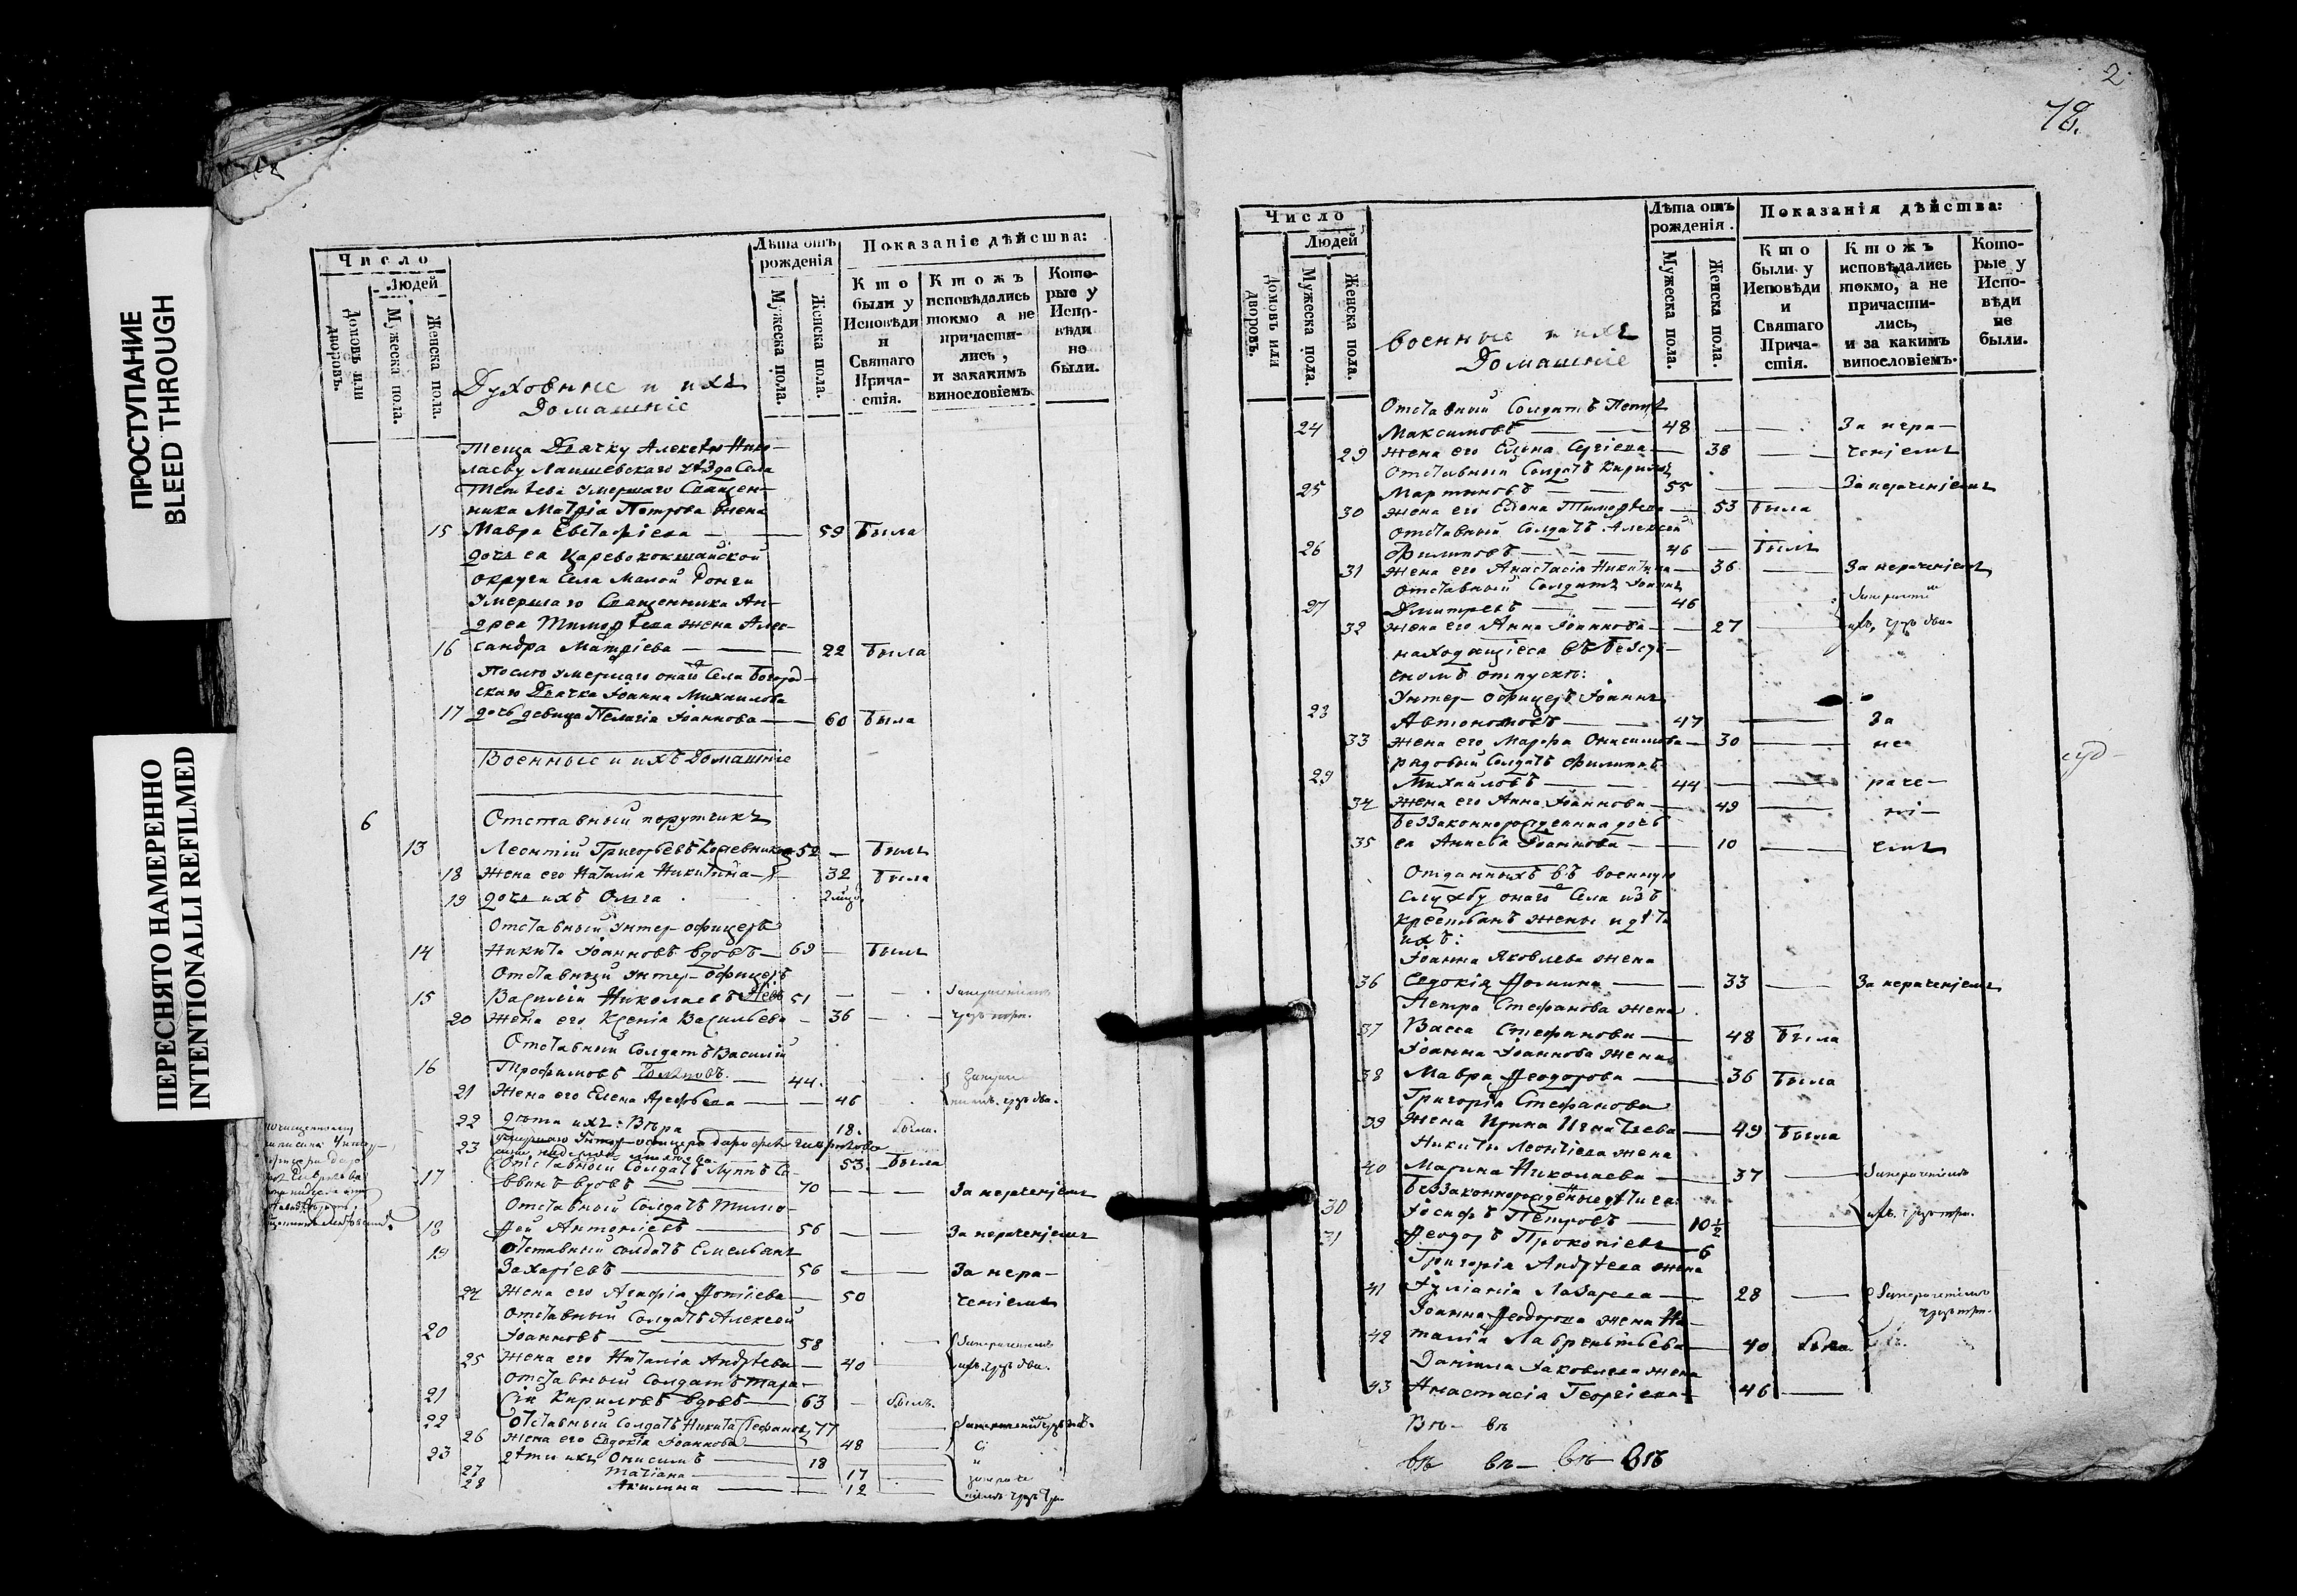 ПРОСТУПАНИЕ
BLEED THROUGH
ПЕРЕСНЯТО НАМЕРЕННО
INTENTIONALLI REFILMED
Число
Людей
Домовъ или дворовъ.
Мужеска пола.
Женска пола.
Духовные и ихъ
Домашніе
Лѣта отъ рожденія
Мужеска пола.
Женска пола.
Показаніе дѣйства:
Кто были у Исповѣди и Святаго Прича-стія.
Ктожъ исповѣдались токмо а не причасти-лись, и закакимъ винословіемъ.
Кото-рые у Испо-вѣди не были.
Теща Дьячку Алексѣю Нико-
лаеву Лаишевскаго уѣзда Села
умершаго Священ-
ника Матфіа Петрова жена
15 Мавра Евстафіева — 59 Была
дочь ея Царевококшайской
округи Села Малой Ронги
Умершаго Священника Ан-
дреа Тимофѣева жена Алек-
16 сандра Матфіева — 22 Была
Послѣ умершаго онаго Села Богород-
скаго Дьячка Іоанна Михаилова
17 дочь девица Пелагіа Іоаннова — 60 Была
Военные и ихъ Домашніе
6 Отставный порутчикъ
13 Леонтій Григорьевъ Кожевников 52 — Былъ
18 Жена его Наталіа Никитина — 32 Была
19 дочь ихъ Олга
Отставный Унтер-офицеръ
14 Никита Іоанновъ вдовъ — 69 — Былъ
Отставный Унтер-офицеръ
15 Василій Николаевъ 51
20 Жена его Ксеніа Васильева — 36
Отставный Солдатъ Василій
16 Трофимовъ — 44
21 Жена его Елена Арефьева — 46
22 дѣти ихъ: Вѣра — 18. была.
23 53 Была
Отставный Солдатъ Луппъ Са-
17 ввинъ вдовъ — 70 — За нераченіемъ
Отставный Солдатъ Тимо-
18 фей Антоніевъ — 56 — За нераченіемъ
19 Отставный солдатъ Емельянъ
Захаріевъ — 56 — За нера-
24 Жена его Агафіа Фотіева — 50 ченіемъ
Отставный Солдатъ Алексей
20 Іоанновъ — 58
25 Жена его Наталіа Андрѣева — 40
Отставный Солдатъ Тара-
21 сій Кириловъ вдовъ — 63 — былъ.
22 Отставный Солдатъ Никита Стефановъ 77
26 Жена его Евдокіа Іоаннова — 48
23 дѣти ихъ Онисимъ — 18
27 Татіана — 17
28 Акилина — 12
2
78.
Число
Людей
Домовъ или дворовъ.
Мужеска пола.
Женска пола.
Военные и ихъ
Домашніе
Лѣта отъ рожденія.
Мужеска пола.
Женска пола.
Показанія дѣйства:
Кто были у Исповѣди и Святаго Прича-стія.
Ктожъ исповѣдались токмо, а не причасти-лись, и за какимъ винословіемъ.
Кото-рые у Испо-вѣди не были.
Отставный Солдатъ Петръ
24 Максимовъ — 48 — За нера-
29 жена его Елена Сергіева — 38 — ченіемъ
Отставный Солдатъ Кирилъ
25 Мартиновъ — 55 — За нераченіемъ
30 жена его Елена Тимофѣева — 53 Была
Отставный Солдатъ Алексей
26 Филиповъ — 46 — Былъ
31 Жена его Анастасіа Никитина — 36 — За нераченіемъ
Отставный Солдатъ Іоаннъ
27 Дмитревъ — 46
32 Жена его Анна Іоаннова — 27
находящіеса въ Безсро-
чномъ отпускѣ:
Унтер-офицеръ Іоаннъ
28 Автономовъ — 47 — За
33 Жена его Марфа Онисимова — 30 — не
рядовый Солдатъ Филиппъ
29 Михайловъ — 44 — раче-
34 Жена его Анна Іоаннова — 49 — ні-
беззаконнорожденна дочь
35 ея Іоаннова — 10 — емъ
Отданныхъ въ военную
службу онаго Села изъ
крестьянъ жены и дѣти
ихъ:
Іоанна Яковлева жена
36 Евдокіа Фомина — 33 — За нераченіемъ
Петра Стефанова жена
37 Васса Стефанова — 48 Была
Іоанна Іоаннова жена
38 Мавра Феодорова — 36 Была
Григоріа Стефанова
39 Жена Ирина Игнатьева — 49 Была
Никиты Леонтіева жена
40 Марина Николаева — 37 — За нераченіемъ
беззаконнорожденые дѣти ея:
30 Іосифъ Петровъ — 10½
31 Феодоръ Прокопіевъ — 6
Григоріа Андрѣева жена
41 Іуліаніа Лазарева — 28 — За нераченіемъ
Іоанна Феодорова жена На-
42 таліа Лаврентьева — 40 была
Даніила Іаковлева жена
43 Анастасіа Георгіева — 46 —